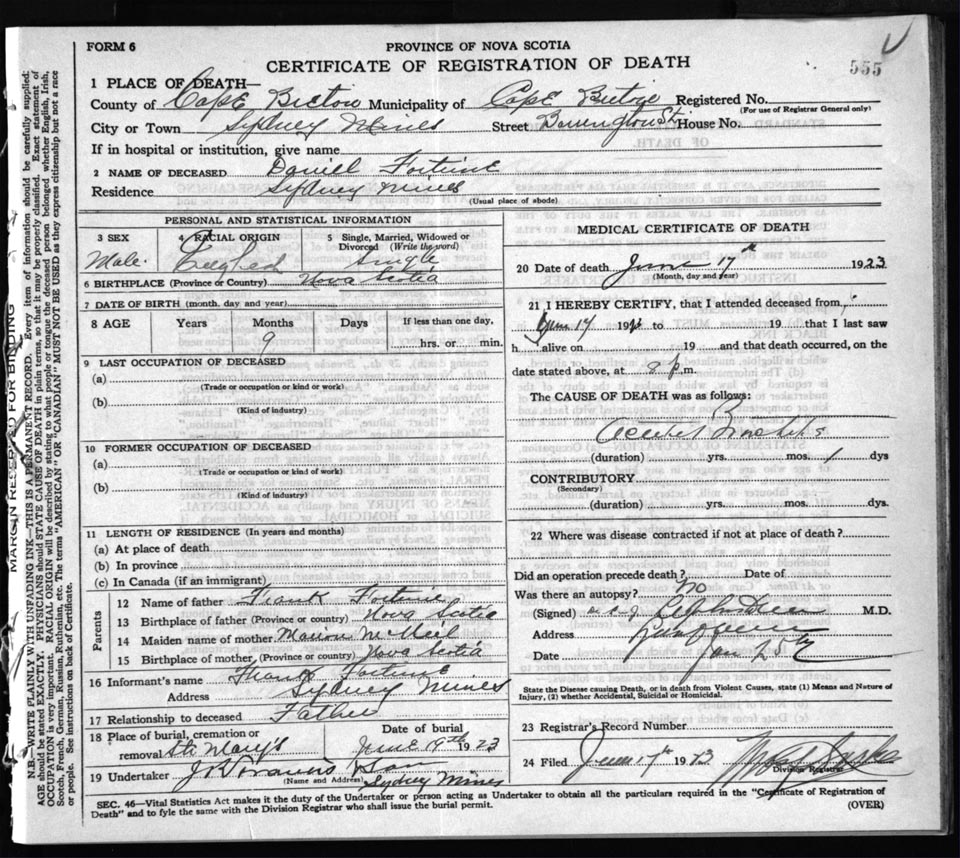 FORM 6
PROVINCE OF NOVA SCOTIA
CERTIFICATE OF REGISTRATION OF DEATH
555
1 PLACE OF DEATH—
County of Cape Breton Municipality of Cape Registered No.
(For use of Registrar General only)
City or Town Sydney Mines Street House No.
If in hospital or institution, give name
2 NAME OF DECEASED Daniel Fortune
Residence Sydney Mines
(Usual place of abode)
PERSONAL AND STATISTICAL INFORMATION
3 SEX Male.
4 RACIAL ORIGIN
5 Single, Married, Widowed or Divorced (Write the word) Single
6 BIRTHPLACE (Province or Country) Nova Scotia
7 DATE OF BIRTH (month, day and year)
8 AGE Years Months Days If less than one day,
9 hrs. or min.
9 LAST OCCUPATION OF DECEASED
(a)
(Trade or occupation or kind or work)
(b)
(Kind of industry)
10 FORMER OCCUPATION OF DECEASED
(a)
(Trade or occupation or kind of work)
(b)
(Kind of industry)
11 LENGTH OF RESIDENCE (In years and months)
(a) At place of death
(b) In province
(c) In Canada (if an immigrant)
Parents
12 Name of father Frank Fortune
13 Birthplace of father (Province or country) Nova Scotia
14 Maiden name of mother Marion McNeil
15 Birthplace of mother (Province or country) Nova Scotia
16 Informant's name Frank Fortune
Address Sydney Mines
17 Relationship to deceased Father
18 Place of burial, cremation or removal St. Mary's
Date of burial June 19th 1923
19 Undertaker & Son
(Name and Address) Sydney Mines
MEDICAL CERTIFICATE OF DEATH
20 Date of death June 1923
(Month, day and year)
21 I HEREBY CERTIFY, that I attended deceased from
June 17 19 to 19 that I last saw
h alive on 19 and that death occurred, on the
date stated above, at 8 p.m.
The CAUSE OF DEATH was as follows:
(duration) yrs. mos. 1 dys
CONTRIBUTORY
(Secondary)
(duration) yrs. mos. dys.
22 Where was disease contracted if not at place of death?
Did an operation precede death? Date of
Was there an autopsy? No
(Signed) M.D.
Address
Date
State the Disease causing Death, or in death from Violent Causes, state (1) Means and Nature of
Injury, (2) whether Accidental, Suicidal or Homicidal.
23 Registrar's Record Number
24 Filed June 19
Division Registrar
SEC. 46—Vital Statistics Act makes it the duty of the Undertaker or person acting as Undertaker to obtain all the particulars required in the "Certificate of Registration of
Death" and to fyle the same with the Division Registrar who shall issue the burial permit.
(OVER)
MARGIN RESERVED FOR BINDING
N.B.—WRITE PLAINLY WITH UNFADING INK—THIS IS A PERMANENT RECORD. Every item of information should be carefully supplied.
AGE should be stated EXACTLY. PHYSICIANS should STATE CAUSE OF DEATH in plain terms, so that it may be properly classified. Exact statement of
OCCUPATION is very important. RACIAL ORIGIN will be described by stating to what people or tongue the deceased person belonged whether English, Irish,
Scotch, French, German, Russian, Ruthenian, etc. The terms "AMERICAN" OR "CANADIAN" MUST NOT BE USED as they express citizenship but not a race
or people. See instructions on back of Certificate.